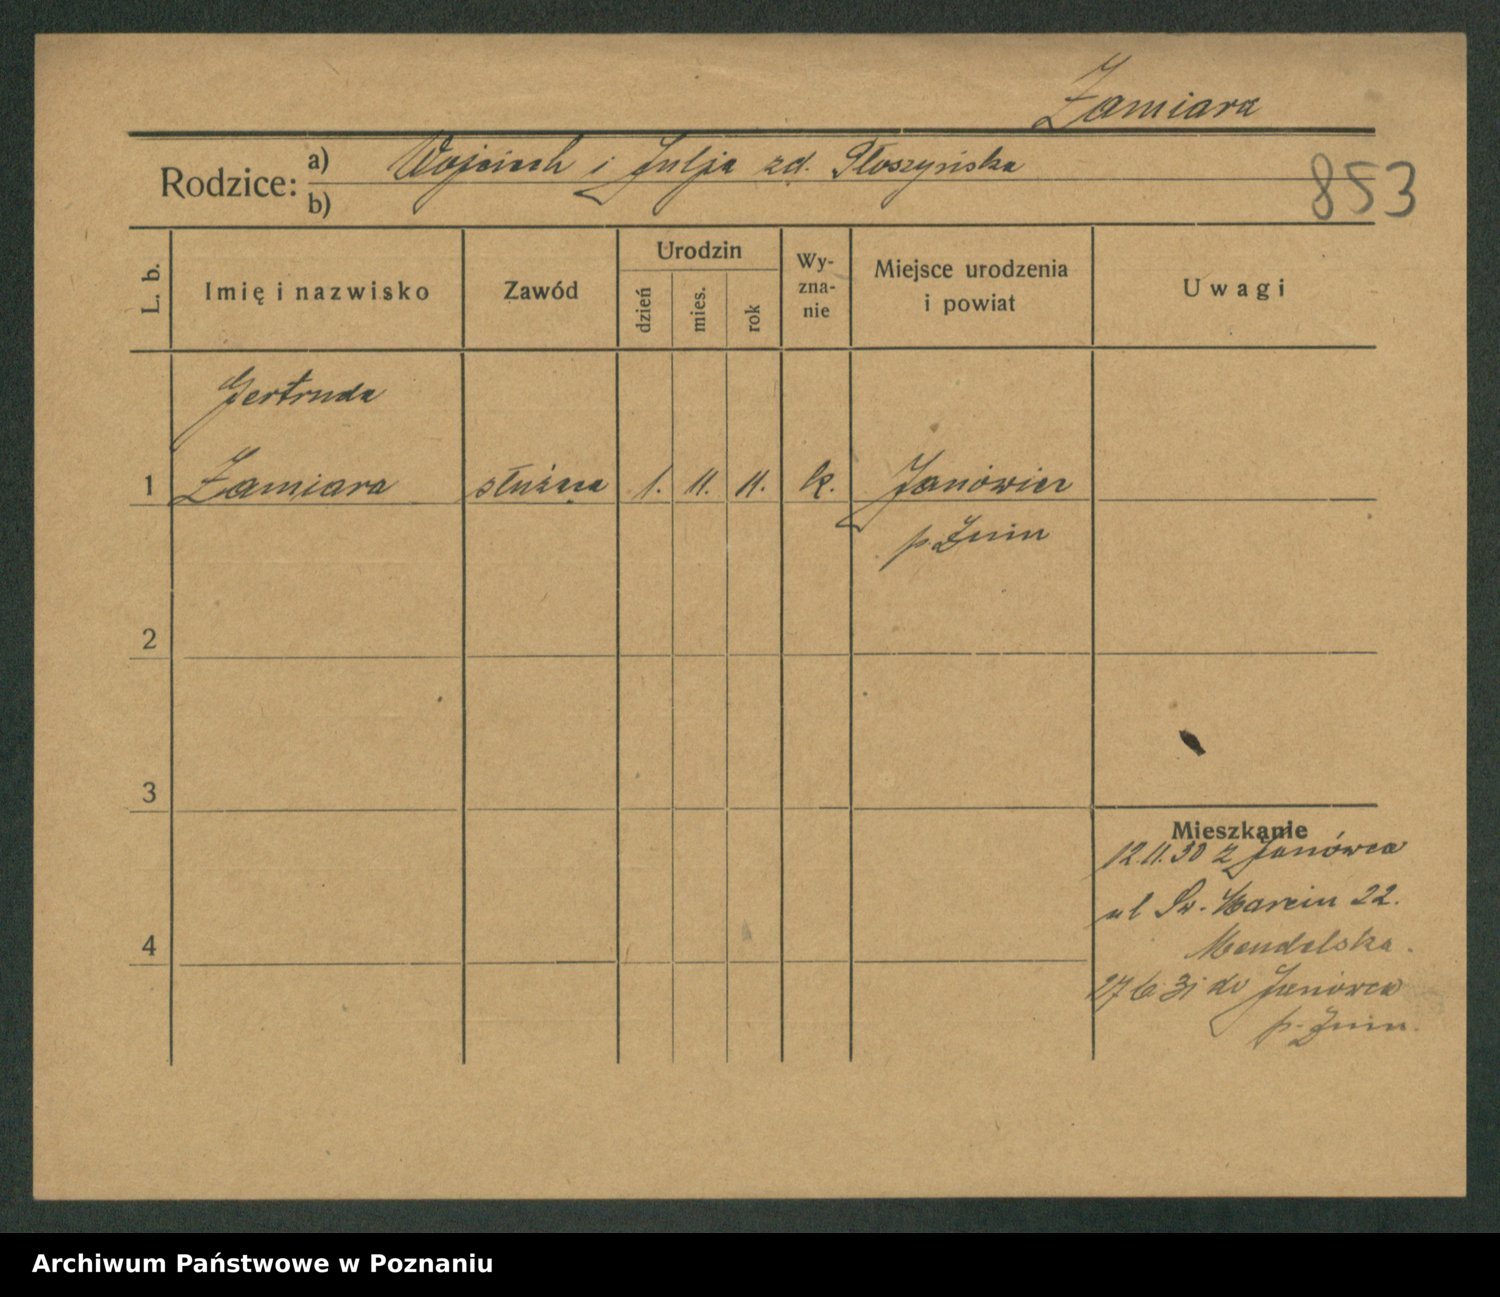 Zamiara
Rodzice:
a) Wojciech i Julja zd. Płoszyńska
b)
853
L. b.
Imię i nazwisko
Zawód
Urodzin
dzień
mies.
rok
Wy-
zna-
nie
Miejsce urodzenia
i powiat
Uwagi
Gertruda
1 Zamiara służąca 1. 11. 11. k. Janówiec
p. Żnin
2
3
Mieszkanie
12.11.30 z Janówca
ul Św. Marcin 22.
Mendelska.
4
27 6 31 do Janówca
p. Żnin.
Archiwum Państwowe w Poznaniu